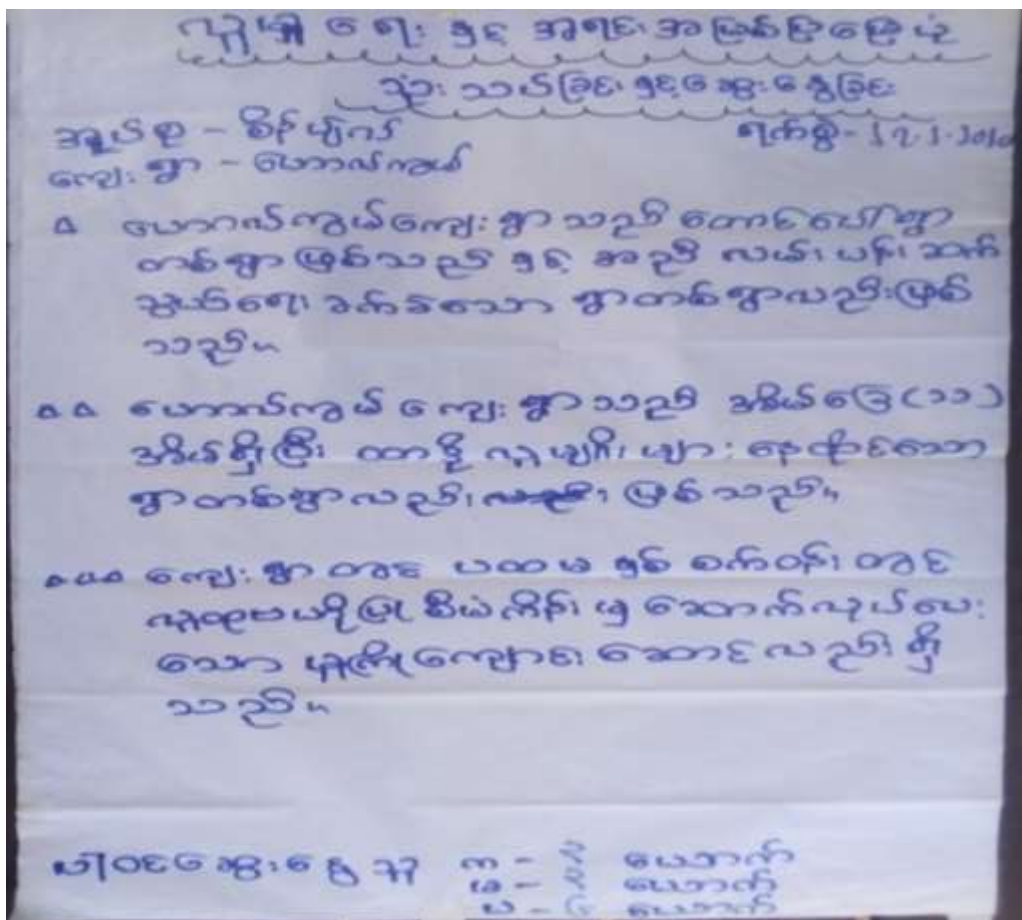 လူမှုရေး နှင့် အရင်းအမြစ်ပြမြေပုံ
သုံးသပ်ခြင်း နှင့် ဆွေးနွေးခြင်း
အုပ်စု - စိန်ပျံကပ်
ရက်စွဲ -
ကျေးရွာ - ဟောလ်ကွယ်
△ ဟောလ်ကွယ်ကျေးရွာသည် တောင်ပေါ်ရွာ
တစ်ရွာ ဖြစ်သည် နှင့် အညီ လမ်းပန်းဆက်
သွယ်ရေး ခက်ခဲသော ရွာတစ်ရွာလည်းဖြစ်
သည်။
△ △ ဟောလ်ကွယ် ကျေးရွာသည် အိမ်ခြေ (၁၁)
အိမ်ရှိပြီး လူမျိုးများ နေထိုင်သော
ရွာတစ်ရွာလည်း ဖြစ်သည်။
△△△ ကျေးရွာတွင် ပထမ နှစ် စက်ဝန်းတွင်
လူထုဗဟိုပြု စီမံကိန်းမှ ဆောက်လုပ်ပေး
သော မူကြိုကျောင်း ဆောင်လည်း ရှိ
သည်။
ပါဝင်ဆွေးနွေးသူ က - ယောက်
မ - ယောက်
ပ - ယောက်